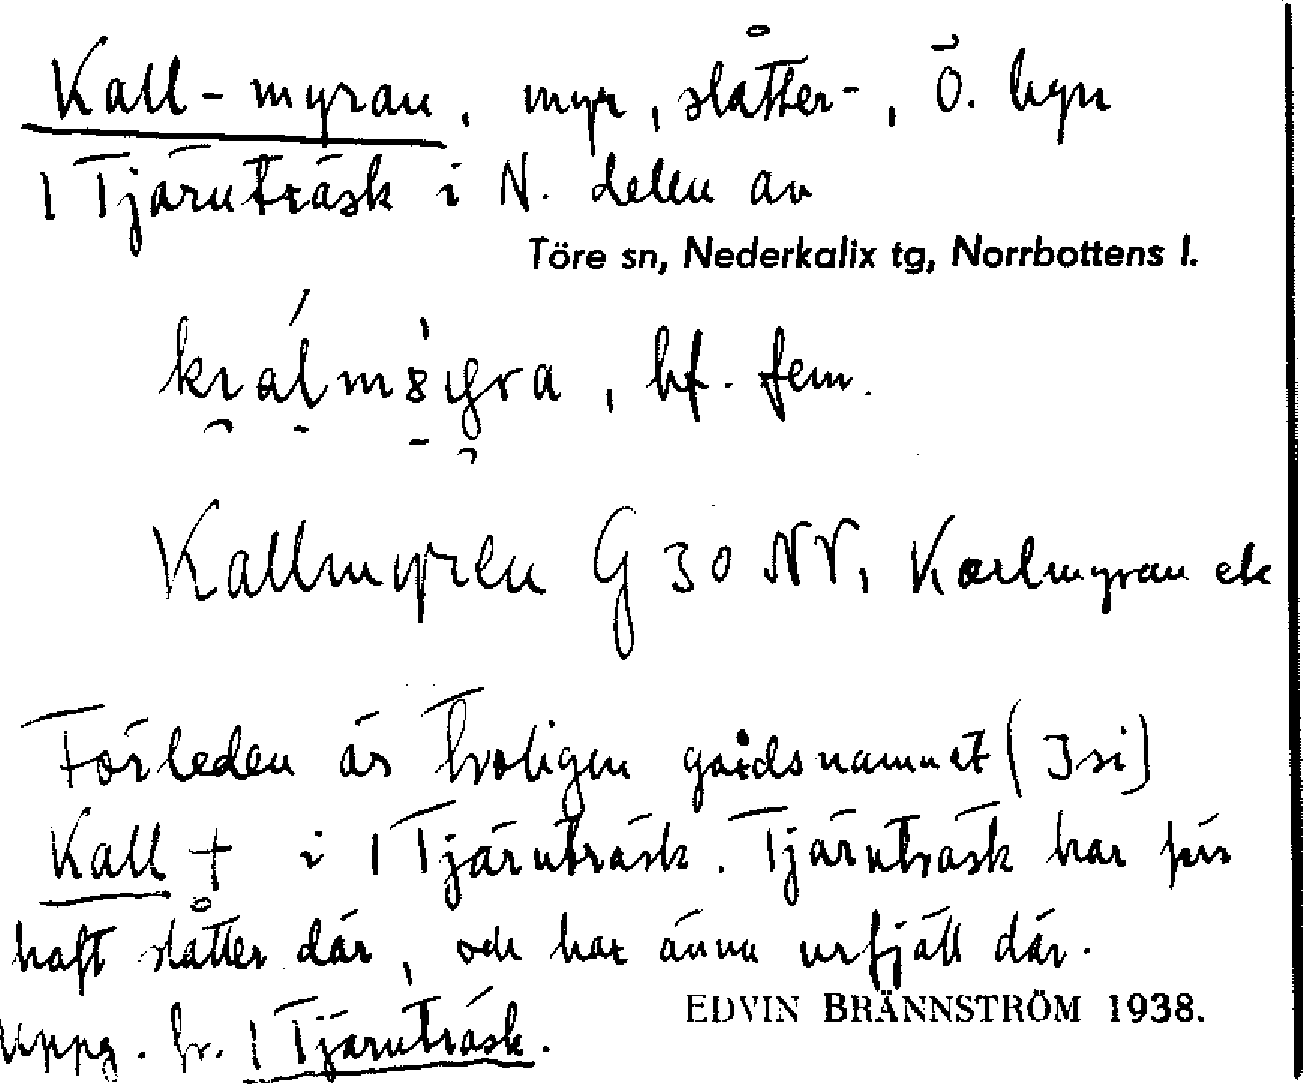 Kall-myran, myr, slåtter-, Ö. byn
1 Tjärnträsk i N. delen av
Töre sn, Nederkalix tg, Norrbottens l.
bf. fem.
Kallmyren G 30 NV, Karlmyran ek
Förleden är troligen gårdsnamnet (Isi)
Kall † i 1 Tjärnträsk. Tjärnträsk har förr
haft slåtter där, och har ännu urfjäll där.
EDVIN BRÄNNSTRÖM 1938.
Uppg. fr. 1 Tjärnträsk.